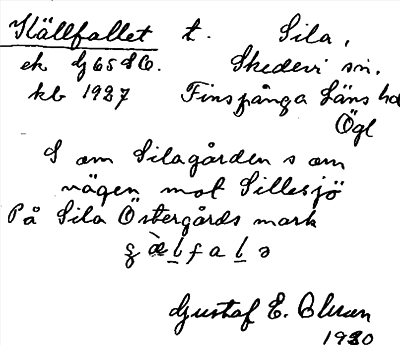 Källfallet t. Sila,
ek G6S SO. Skedevi sn.
kb 1927 Finspånga Läns hd
Ögl
S om Silagården s om
vägen mot Sillesjö
På Sila Östergårds mark
Gustaf E. Olsson
1930